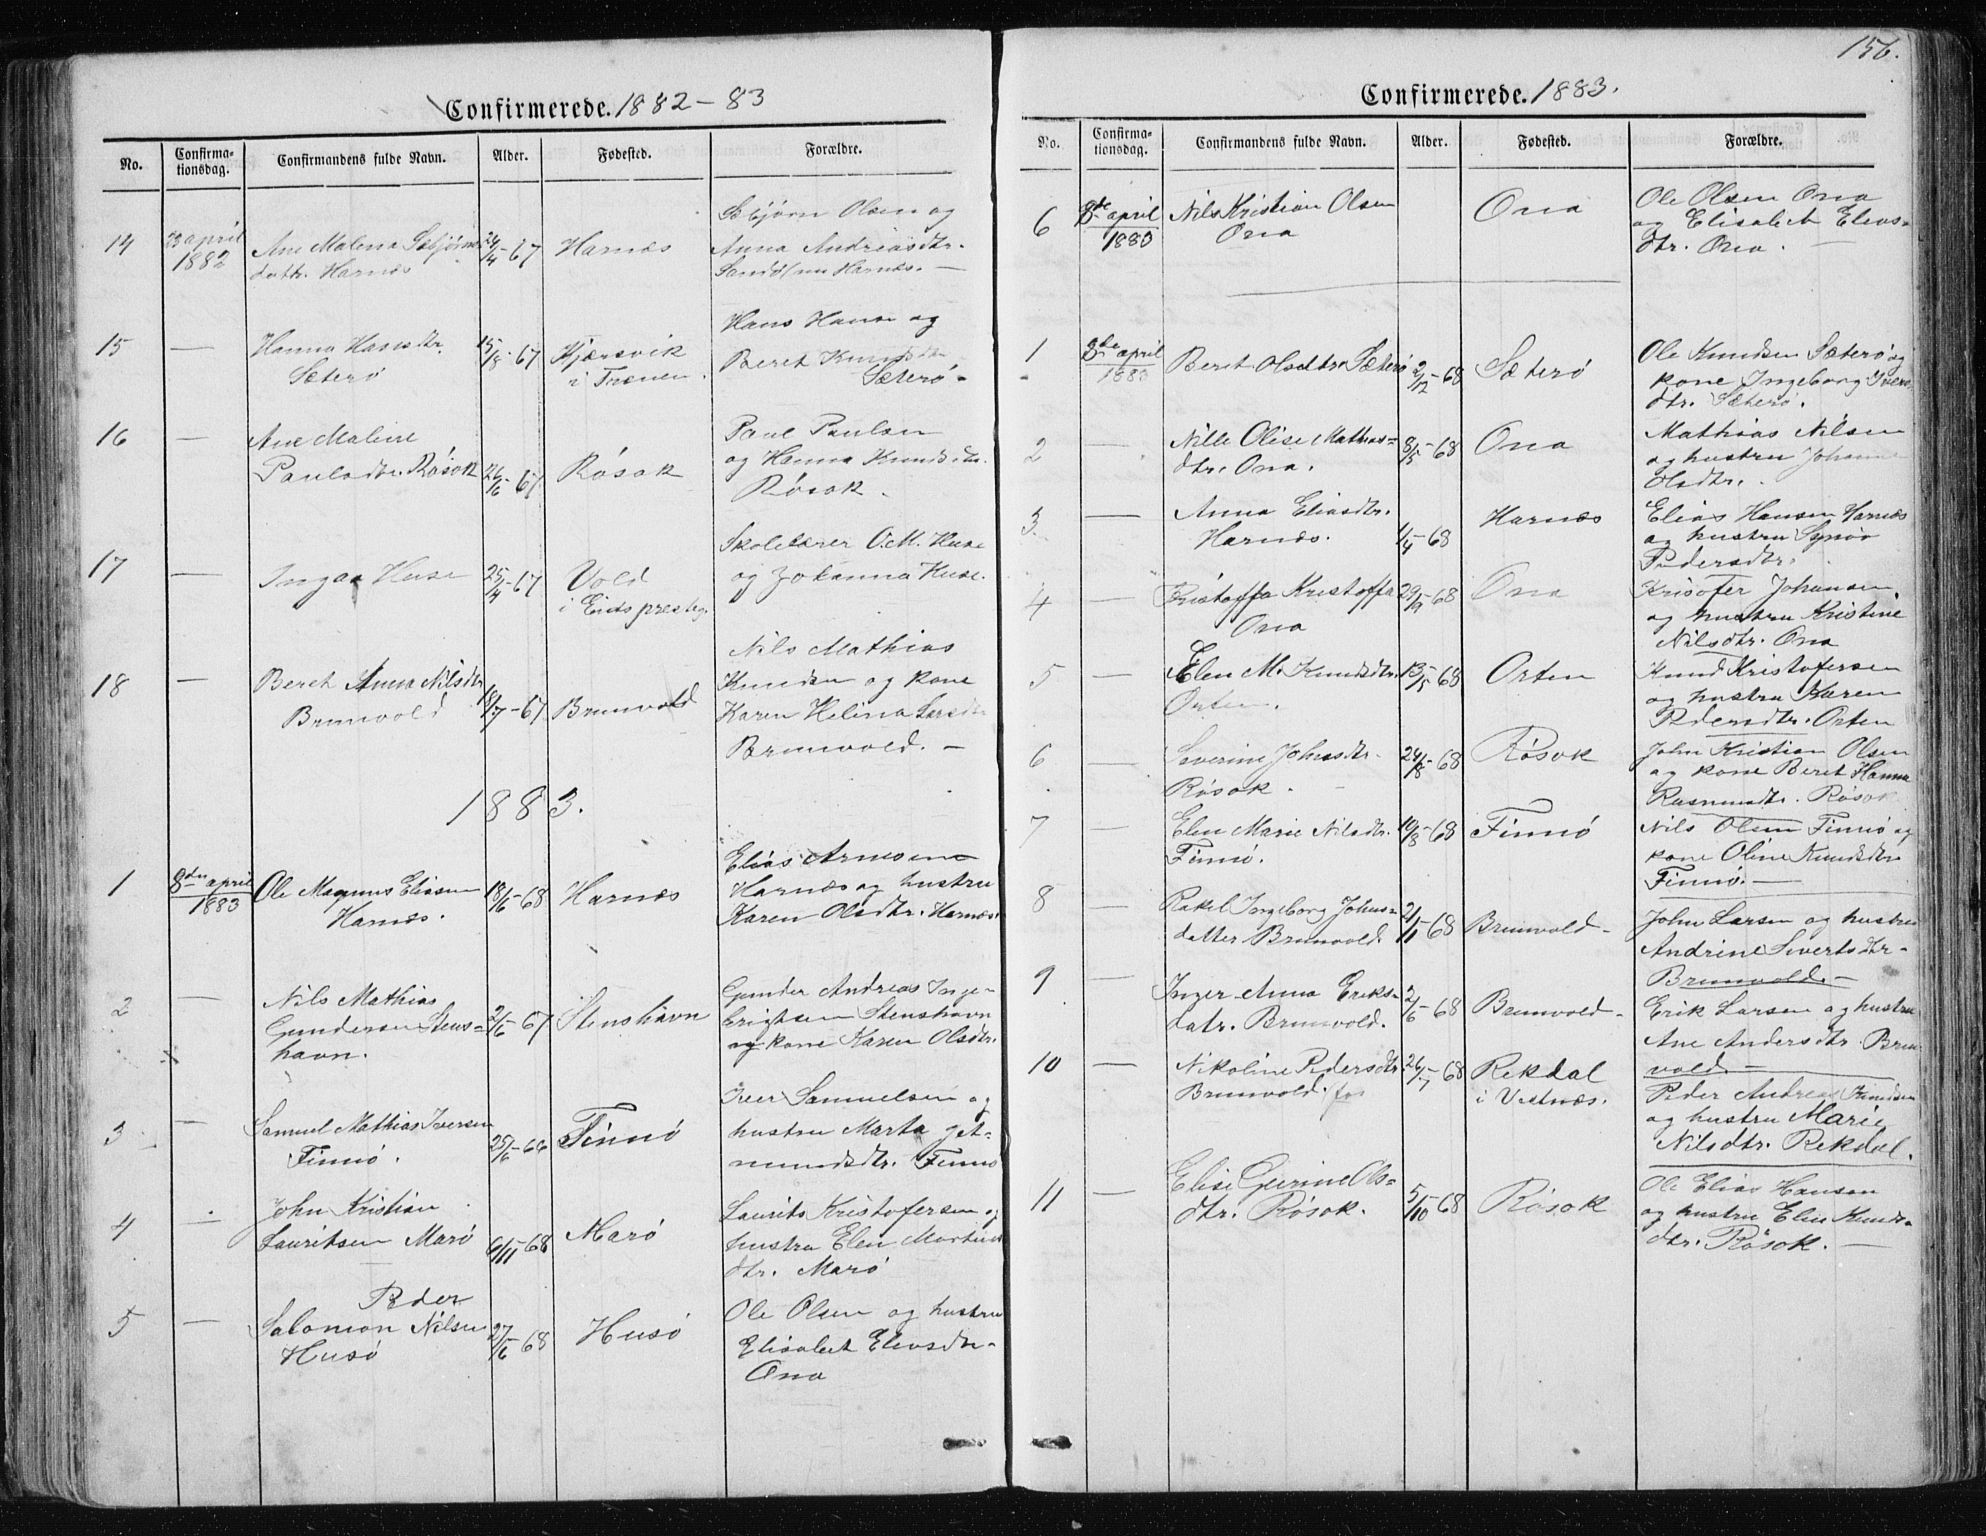 Confirmerede. 1882-83
No.
Confirma-
tionsdag.
Confirmandens fulde Navn.
Alder.
Fødested.
Forældre.
14
23 april
1882
Ane Malena
dattr. Harnæs
24/4-67
Harnæs
Olsen og
Anna Andreasdtr.
Harnæs. —
15
—
Hanna Hansdtr.
Sæterø
15/8-67
Kjærsvik
i Trænen.
Hans Hansen og
Beret Knudsdtr
Sæterø -
16
—
Ane Maline
Paulsdtr. Røsok
26/6-67
Røsok
Paul Paulsen
og Hanna Knudsdtr.
Røsok.
17
—
Inga Huse
25/4-67
Vold
i Eids prestegj.
Skolelærer O.M. Huse
og Johanna Huse.
18
—
Beret Anna Nilsdtr
Brunvold
18/7-67
Brunvold
Nils Mathias
Knudsen og kone
Karen Helina Larsdtr
Brunvold. —
1883.
1
8de april
1883
Ole Magnus Eliasen
Harnæs.
18/6-68
Harnæs
Elias Arnesen
Harnæs og hustru
Karen Olsdtr. Harnæs.
2
—
Nils Mathias
Gundersen Stens-
havn.
2/6-67
Stenshavn
Gunder Andreas Inge-
brigtsen Stenshavn
og kone Karen Olsdtr.
3
—
Samuel Mathias Iversen
Finnø.
25/6-66
Finnø
Iver Samuelsen og
hustru Marta Jet-
mundsdtr. Finnø
4
—
John Kristian
Lauritsen Marø
6/11-68
Marø
Laurits Kristofersen og
hustru Elen
dtr. Marø
5
—
Peder
Salomon Nilsen
Husø
27/6-68
Husø
Ole Olsen og hustru
Elisabet Eliasdtr-
Ona
156.
Confirmerede. 1883.
No.
Confirma-
tionsdag.
Confirmandens fulde Navn.
Alder.
Fødested.
Forældre.
6
8de april
1883
Nils Kristian Olsen
Ona
Ona
Ole Olsen Ona
og Elisabet Elias-
dtr. Ona.
1
8de april
1883
Beret Olsdtr. Sæterø
2/12-68
Sæterø
Ole Knudsen Sæterø og
kone Ingeborg Ivers
dtr. Sæterø.
2
—
Nille Olise Mathias-
dtr. Ona.
8/5-68
Ona
Mathias Nilsen
og hustru Johanne
Olsdtr.
3
—
Anna Eliasdtr.
Harnæs.
1/4-68
Harnæs
Elias Hansen Harnæs
og hustru Synøv
Pedersdtr.
4
—
Kristoffa Kristoffa
Ona
29/9-68
Ona
Kristofer Johansen
og hustru Kristine
Nilsdtr. Ona
5
—
Elen M. Knudsdtr.
Orten.
13/5-68
Orten
Knud Kristofersen
og hustru Karen
Pedersdtr. Orten
6
—
Severine Johnsdtr.
Røsok.
24/8-68
Røsok
John Kristian Olsen
og kone Beret Hanna
Rasmusdtr. Røsok
7
—
Elen Marie Nilsdtr.
Finnø.
19/8-68
Finnø
Nils Olsen Finnø og
kone Oline Knudsdtr
Finnø. —
8
—
Rakel Ingeborg Johns-
datter Brunvold.
2/11-68
Brunvold -
John Larsen og hustru
Andrine Sivertsdtr-
Brunvold. —
9
—
Inger Anna Eriks-
datr. Brunvold.
2/6-68
Brunvold -
Erik Larsen og hustru
Ane Andersdtr. Brun
vold —
10
—
Nikoline Pedersdtr
Brunvold.
26/7-68
Rekdal
i Vestnæs.
Peder Andreas Knudsen
og hustru Marie
Nilsdtr. Rekdal.
11
—
Elise Gurine Ols-
dtr. Røsok.
5/10-68
Røsok
Ole Elias Hansen
og hustru Elen Knuds-
dtr. Røsok. —